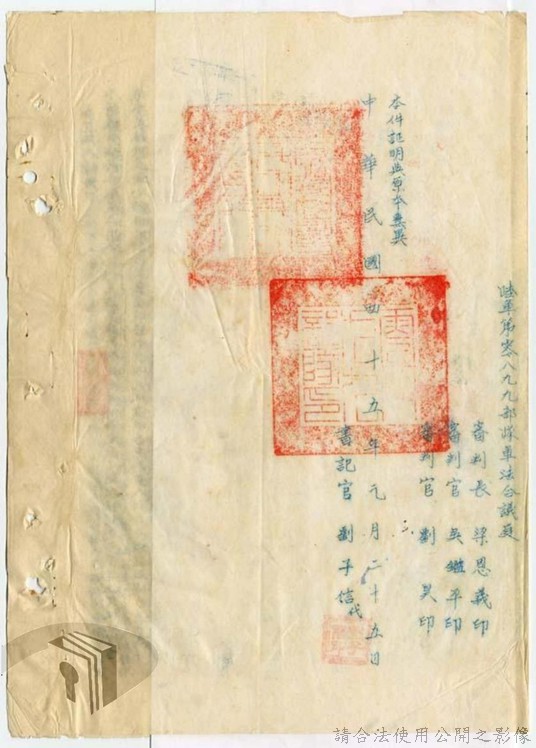 陸軍第零八九九部隊軍法合議庭
審判長 梁恩義印
審判官 吳繼平印
審判官 劉昊印
本件記明與原本無異
中華民國四十五年元月二十五日
書記官 劉子信代
請合法使用公開之影像